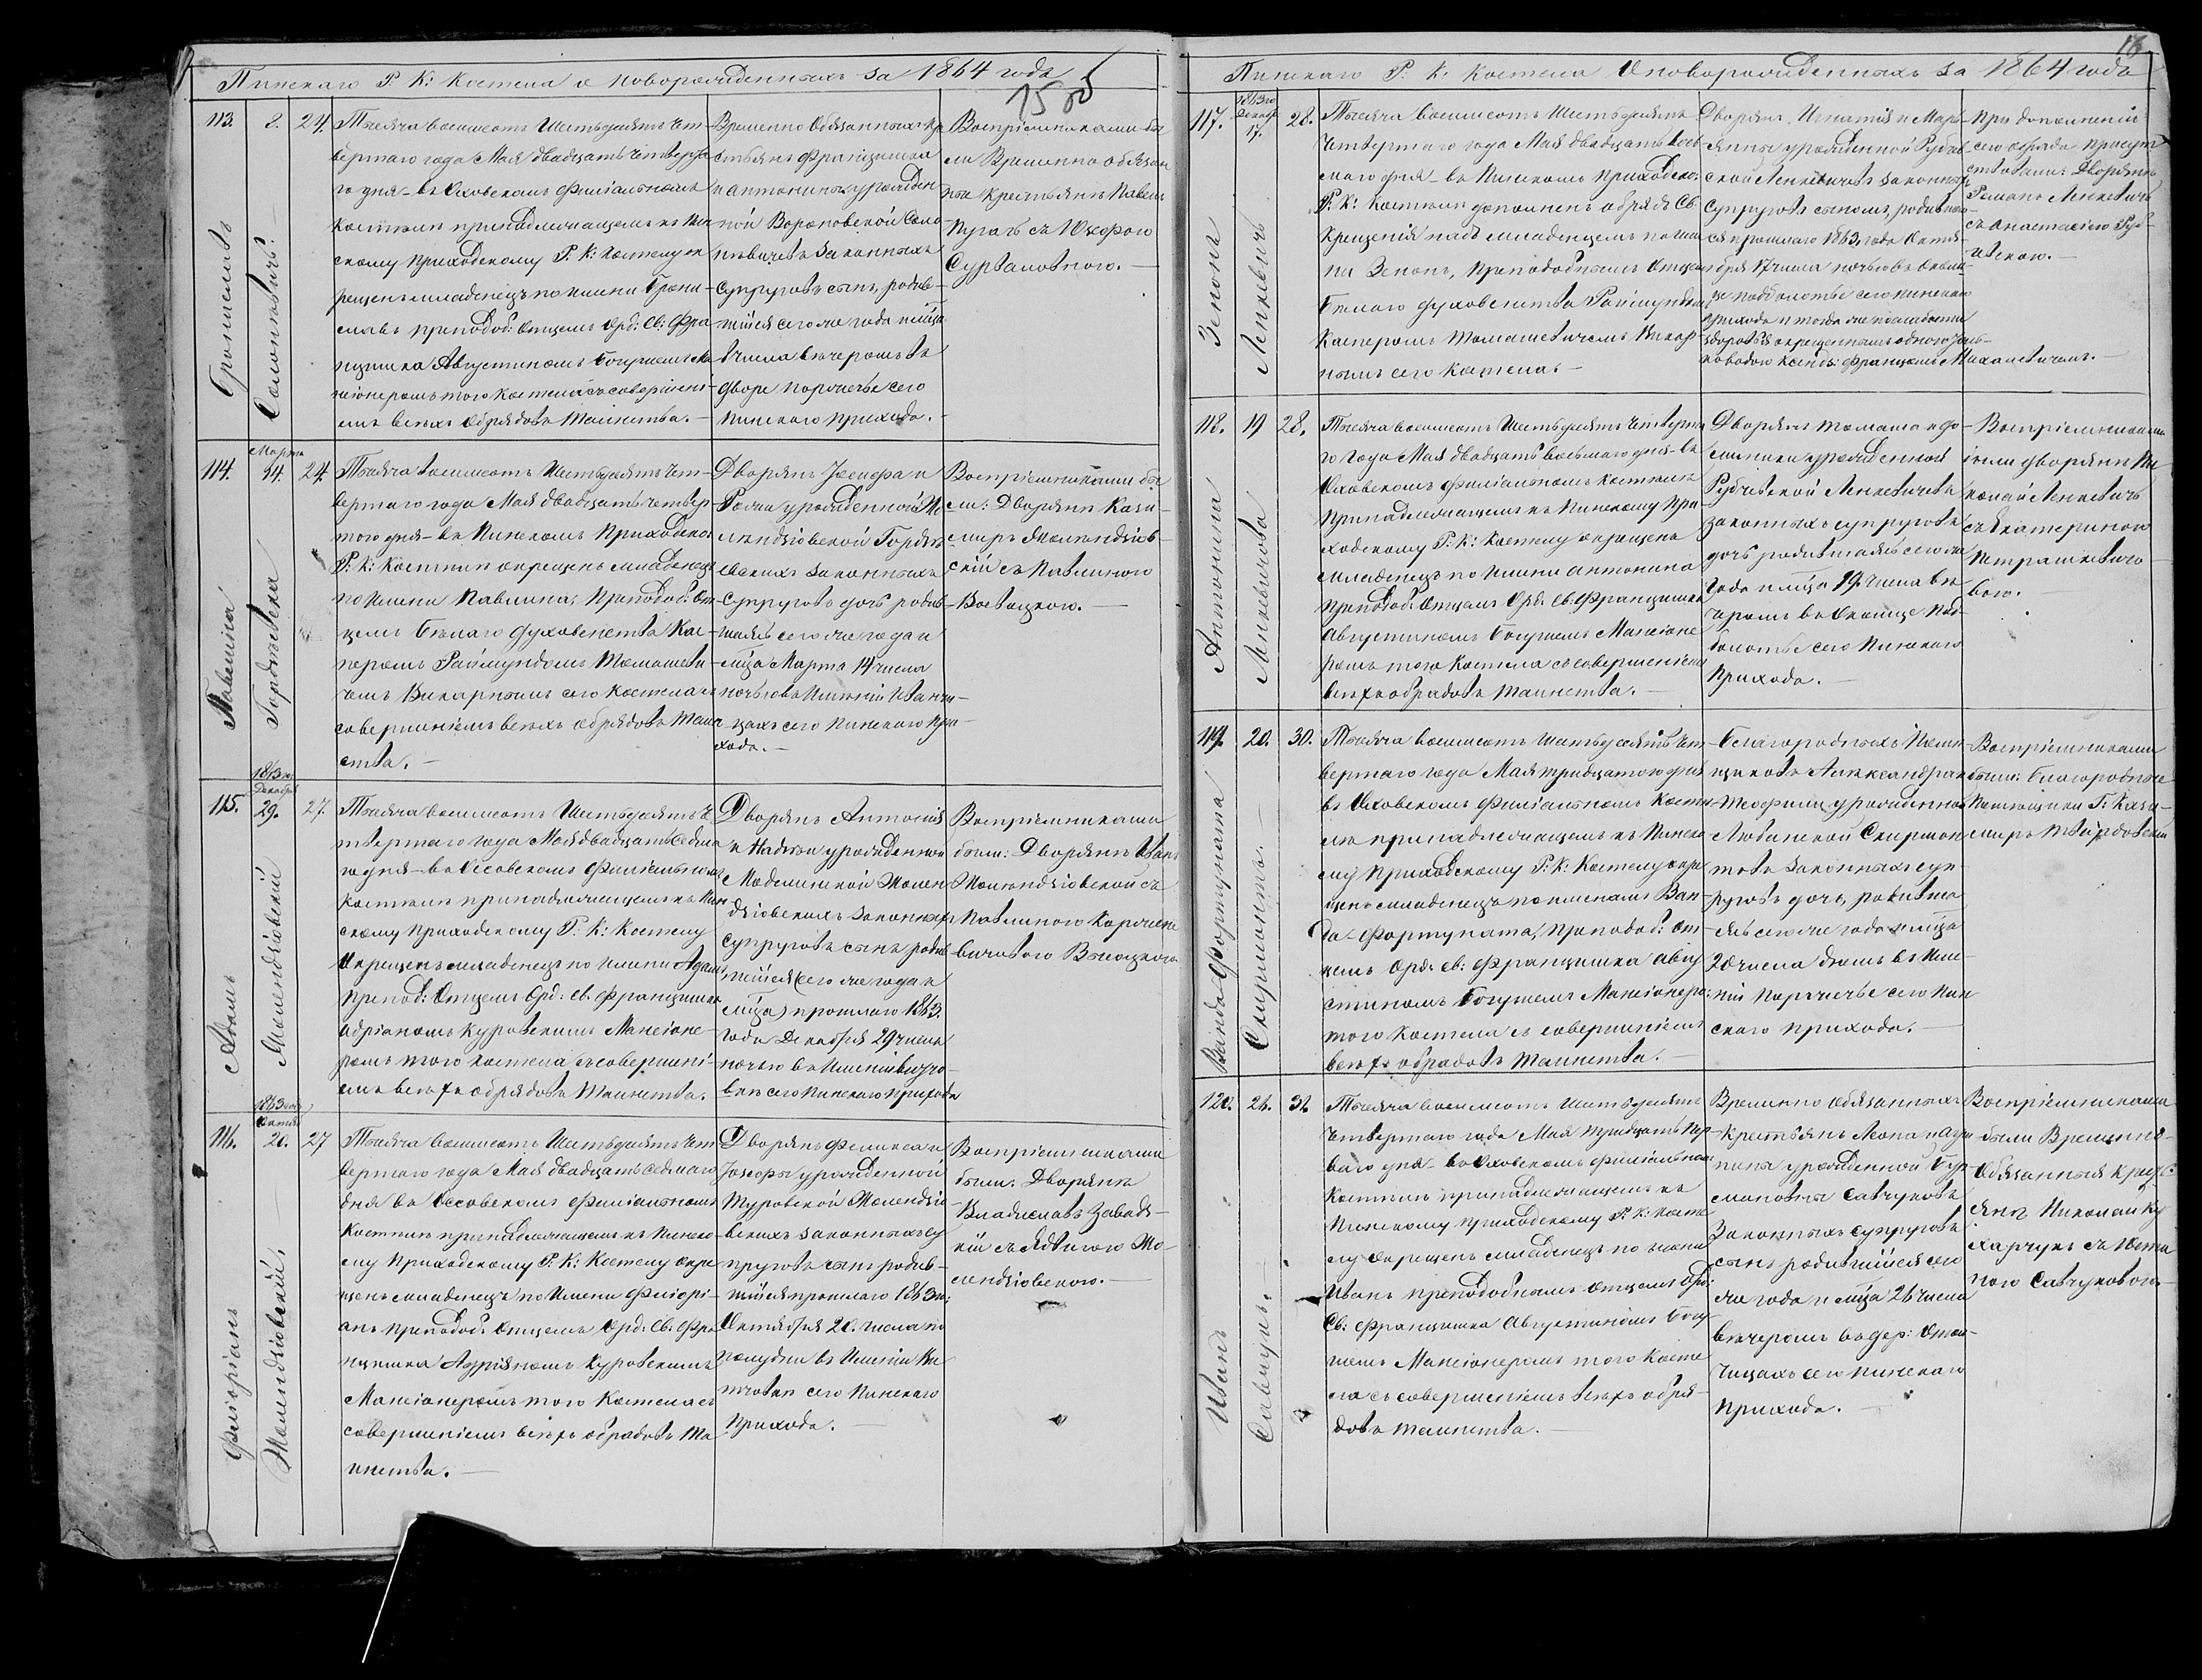 Пинскаго Р. К: Костела о новорожденныхъ за 1864 года
15 об
113.
8.
24.
Брониславъ
Соломовичъ.
Тысяча восемсотъ шестьдесятъ чет-
вертаго года Мая двадцать четверта
го дня – въ Оховскомъ филіальномъ
Костеле принадлежащемъ къ Пин
скому приходскому Р. К: Костелу ок
рещенъ младенецъ по имени Брони-
славъ преподоб: Отцемъ Орд: Св: Фра
нцишка Августиномъ Богушемъ Ма
нсіонеромъ того Костела съ совершені-
емъ всехъ обрядовъ таинства. –
Временно Обязанныхъ Кр
естьянъ Францишка
и Антонины урожден-
ной Вороновской Соло
невичевъ законныхъ
Супруговъ сынъ, родив-
шійся сего же года и мца
8 числа вечеромъ въ
дворе Поречье сего
Пинскаго прихода. –
Воспріемниками бы
ли Временно обязан
ные Крестьянъ Павелъ
Пугачъ съ Юзефою
Сурталовною. –
114.
Марта
14.
24.
Павлина
Гордзевска
Тысяча восемсотъ шестьдесятъ чет-
вертаго года Мая двадцать четвер
того дня – въ Пинскомъ Приходскомъ
Р. К: Костеле окрещенъ младенецъ
по имени Павлина, Преподоб: От-
цемъ Белаго Духовенства Кас-
перомъ Раймундомъ Томашеви-
чемъ Викарнымъ сего Костела съ
совершеніемъ всехъ обрядовъ таин
ства. –
Дворянъ Іосифа и
Розаліи урожденной
Гордзе
евскихъ законныхъ
Супруговъ дочь родив-
шаясь сего же года и
мца Марта 14 числа
ночью въ имѣніи Иванчи-
цахъ сего Пинскаго при-
хода. –
Воспріемниками бы
ли: Дворяне Кази-
миръ
скій съ Павлиною
Войвоцкою. –
115.
1863 го
Декабря
29.
27.
Адамъ
Желендзіовскій
Тысяча восемсотъ шестьдесятъ че
твертаго года Мая двадцать седма
го дня – въ Оссовскомъ филіальномъ
Костеле принадлежащемъ къ Пин
скому приходскому Р. К: Костелу
Окрещенъ младенецъ по имени Адамъ
препод: Отцемъ Орд: Св. Францишка
Адріаномъ Куровскимъ Мансіоне-
ромъ того костела съ совершені-
емъ всехъ обрядовъ таинства.
Дворянъ Антонія
и Надези урожденной
Модзелевской Желен
дзіовскихъ законныхъ
Супруговъ сынъ родив
шійся (сего же года и
мца) прошлаго 1863.
года Декабря 29 числа
ночью въ имѣніи
сего Пинскаго прихода
Воспріемниками
были: Дворянъ Иванъ
Желендзіовской съ
Павлиною
вичовою Высоцкою
116.
1863 года
Октяб
20.
27
Флоріанъ
Желендзіовскій.
Тысяча восемсотъ шестьдесятъ чет
вертаго года Мая двадцать седмаго
дня въ Оссовскомъ филіальномъ
Костеле принадлежащемъ къ Пинско
му Приходскому Р. К. Костелу окре
щенъ младенецъ по имени Флорі-
анъ преподоб: Отцемъ Орд. Св. Фра
нцишка Адріаномъ Куровскимъ
Мансіонеромъ того Костела съ
совершеніемъ всехъ обрядовъ Та
инства. –
Дворянъ Феликса и
Іозефы урожденной
Туровской Желендзіо
вскихъ законныхъ су
пруговъ сынъ родив-
шійся прошлаго 1863 го
Октября 20. числа по
полудни въ Имѣніи Ви
сего Пинскаго
Прихода. –
Воспріемниками
были: Дворяне
Владиславъ Завадс-
кій съ Ядвигою Же-
лендзіовскою. –
16
Пинскаго Р: К. Костела о новорожденныхъ за 1864 года
117.
1863 го
Декабр
17.
28.
Зенонъ
Ленкевичъ
Тысяча восемсотъ шестьдесятъ
четвертаго года Мая двадцать вось
маго дня – въ Пинскомъ приходскомъ
Р. К: Костеле дополненъ обрядъ Св.
Крещенія надъ младенцемъ по име
ни Зенонъ, преподобнымъ Отцемъ
Белаго Духовенства Раймундомъ
Касперомъ Томашевичемъ Викар-
нымъ сего Костела. –
Дворянъ Игнатія и Марь
янны урожденной Рубчев
ской Ленкевичевъ законныхъ
Супруговъ сыномъ, родившим
ся прошлаго 1863 года
17 числа ночью въ околи-
це Подболотье сего Пинскаго
прихода и тогда же по слабости
здоровья окрещеннымъ одною толь-
ко водою Ксендз: Францомъ Михалевичемъ. –
При дополненіи
сего обряда присут
ствовали: Дворяне
Романъ Ленкевичъ
съ Анастасіею Руб-
чевскою. –
118.
19
28.
Антонина
Ленкевичова
Тысяча восемсотъ шестьдесятъ четверта
го года Мая двадцать восьмаго дня – въ
Оховскомъ филіальномъ костеле
принадлежащемъ къ Пинскому при
ходскому Р. К: Костелу окрещенъ
младенецъ по имени Антонина
преподоб: Отцемъ Орд. Св. Францишка
Августиномъ Богушемъ Мансіоне
ромъ того Костела съ совершеніемъ
всехъ обрядовъ таинства. –
Дворянъ Томаша и До-
миники урожденной
Рубчевской Ленкевичевъ
законныхъ супруговъ
дочь родившаясь сего же
года и мца 19. числа ве
черомъ въ околице Под-
болотье сего Пинскаго
прихода. –
Воспріемниками
были дворяне Ни
колай Ленкевичъ
съ Екатериною
Петрашкевичо-
вою. –
119.
20.
30.
Ванда-Фортуната
Скирмонтъ.
Тысяча восемсотъ шестьдесятъ чет
вертаго года Мая тридцатого дня
въ Оховскомъ филіальномъ Косте
ле принадлежащемъ къ Пинско
му приходскому Р. К. Костелу окре
щенъ младенецъ по именамъ Ван-
да-Фортуната, преподоб: От
цемъ Орд: Св: Францишка Авгу
стиномъ Богушемъ Мансіонеро:
того Костела съ совершеніемъ
всехъ обрядовъ таинства. –
Благородныхъ Поме-
щиковъ Александра и
Теофиліи урожденной
Любанской Скирмон
товъ законныхъ суп-
руговъ дочь, родивша
ясь сего же года и мца
20 числа днемъ въ име-
ніи Поречье сего Пин
скаго прихода. –
Воспріемниками
были: Благородные
Помещики Г: Кази-
миръ Твардовскій
120.
26.
31.
Иванъ
Савчукъ.
Тысяча восемсотъ шестьдесятъ
четвертаго года Мая тридцать пер
ваго дня – въ Оховскомъ филіальномъ
Костеле принадлежащемъ къ
Пинскому приходскому Р. К: Косте
лу окрещенъ младенецъ по имени
Иванъ преподобнымъ Отцемъ Орд:
Св: Францишка Августиномъ Богу
шемъ Мансіонеромъ того Косте
ла съ совершеніемъ всехъ обря-
довъ таинства. –
Временно обязанныхъ
крестьянъ Леона и Агри
пины урожденной
Савчуковъ
Законныхъ супруговъ
сынъ родившійся сего
же года и мца 26 числа
вечеромъ въ дер:
сего Пинскаго
прихода. –
Воспріемниками
были Временно-
Обязанныя крест:
яне Николай Ку
харчукъ съ
Савчуковою.